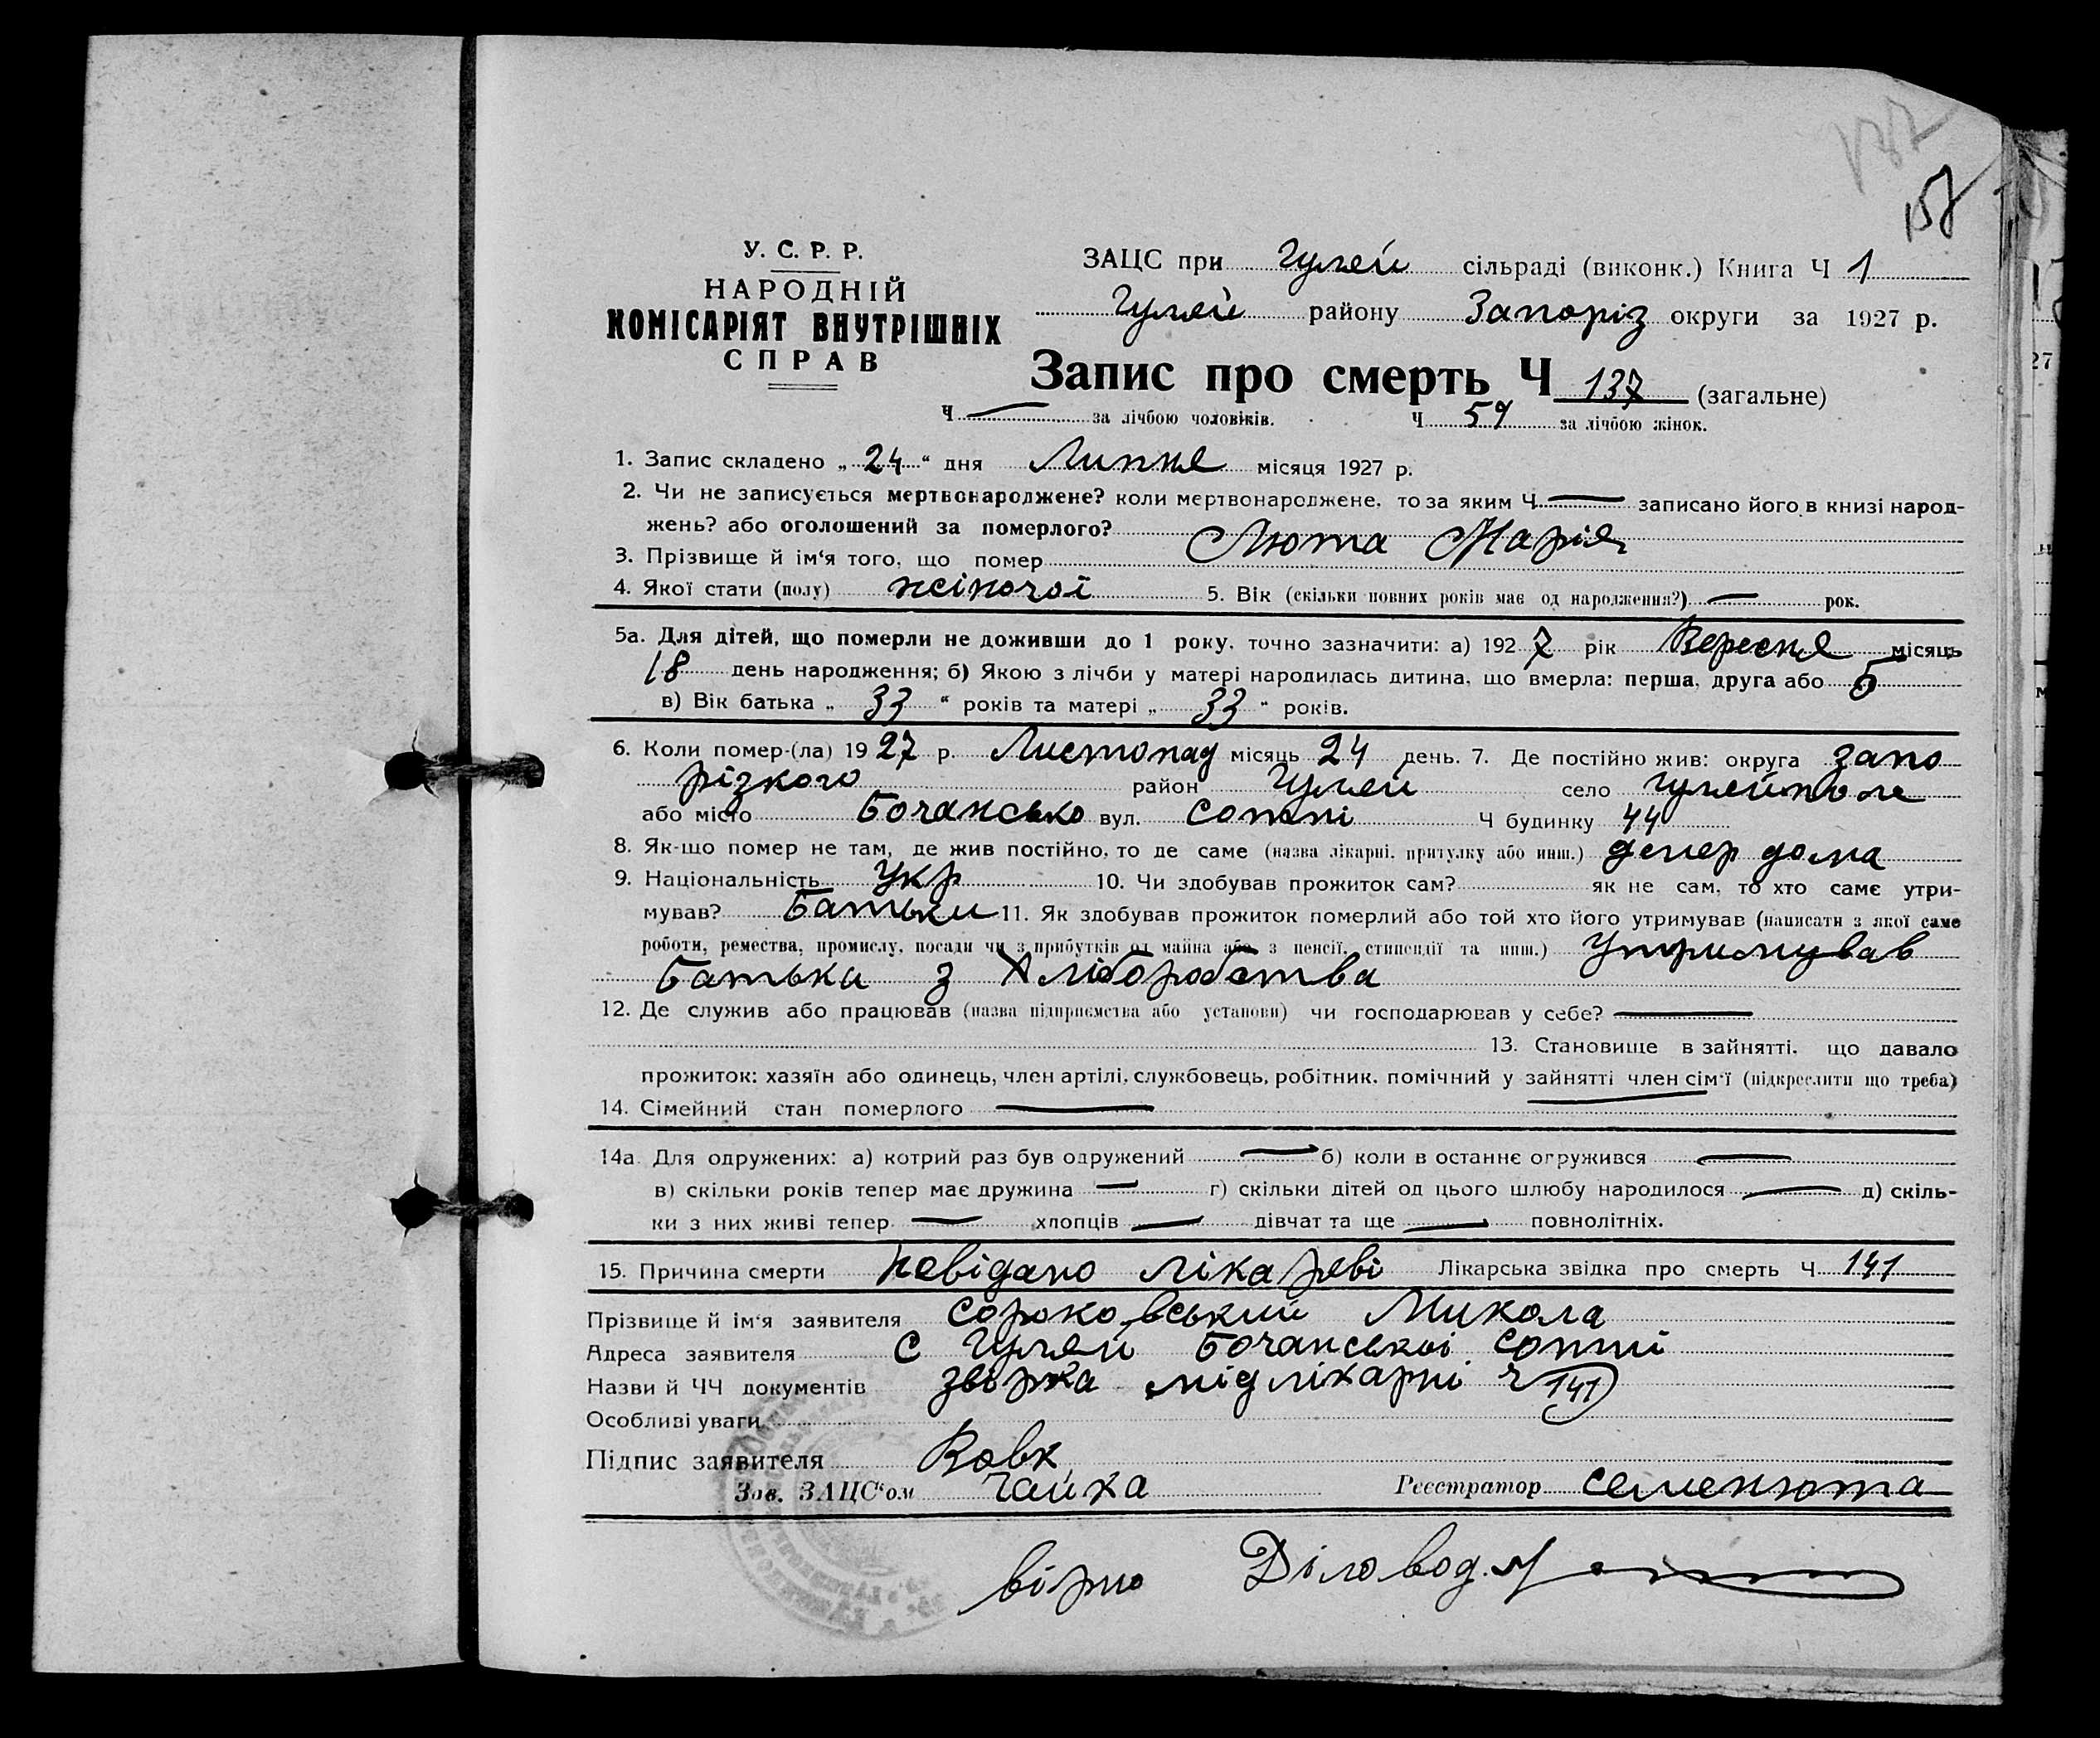 137
157
У. С. Р. Р.
НАРОДНІЙ
КОМІСАРІЯТ ВНУТРІШНІХ
СПРАВ
ЗАЦС при Гуляй сільраді (виконк.) Книга Ч 1
Гуляй району Запоріз округи за 1927 р.
Запис про смерть Ч 137 (загальне)
Ч — за лічбою чоловіків. Ч 59 за лічбою жінок.
1. Запис складено „ 24 “ дня Липня місяця 1927 р.
2. Чи не записується мертвонароджене? коли мертвонароджене, то за яким Ч — записано його в книзі народ-
жень? або оголошений за померлого?
3. Прізвище й ім‘я того, що помер Люта Марія
4. Якої стати (полу) жіночої 5. Вік (скільки повних років має од народження?) — рок.
5а. Для дітей, що померли не доживши до 1 року, точно зазначити: а) 1927 рік Вересня місяць
18 день народження; б) Якою з лічби у матері народилась дитина, що вмерла: перша, друга або 5
в) Вік батька „ 33 “ років та матері „ 33 “ років.
6. Коли помер-(ла) 1927 р. Листопад місяць 24 день. 7. Де постійно жив: округа запо
різкого район Гуляй село гуляйполе
або місто Бочансько вул. сотні Ч будинку 44
8. Як-що помер не там, де жив постійно, то де саме (назва лікарні, притулку або инш.) дома
9. Національність Укр 10. Чи здобував прожиток сам? як не сам, то хто саме утри-
мував? Батьки 11. Як здобував прожиток померлий або той хто його утримував (написати з якої саме
роботи, ремества, промислу, посади чи з прибутків од майна або з пенсії, стипендії та инш.) Утримував
Батька з Хліборобства
12. Де служив або працював (назва підприємства або установи) чи господарював у себе? —
13. Становище в зайнятті, що давало
прожиток: хазяїн або одинець, член артілі, службовець, робітник, помічний у зайнятті член сім‘ї (підкреслити що треба)
14. Сімейний стан померлого —
14а. Для одружених: а) котрий раз був одружений — б) коли в останнє огружився —
в) скільки років тепер має дружина — г) скільки дітей од цього шлюбу народилося — д) скіль-
ки з них живі тепер — хлопців — дівчат та ще — повнолітніх.
15. Причина смерти невідано лікареві Лікарська звідка про смерть Ч 141
Прізвище й ім‘я заявителя сороковський Микола
Адреса заявителя С Гуляй Бочанської сотні
Назви й ЧЧ документів лікарні ч 141
Особливі уваги
Підпис заявителя Вовк
Зав. ЗАЦС‘ом Чайка Реєстратор семенюта
вірно Діловод.